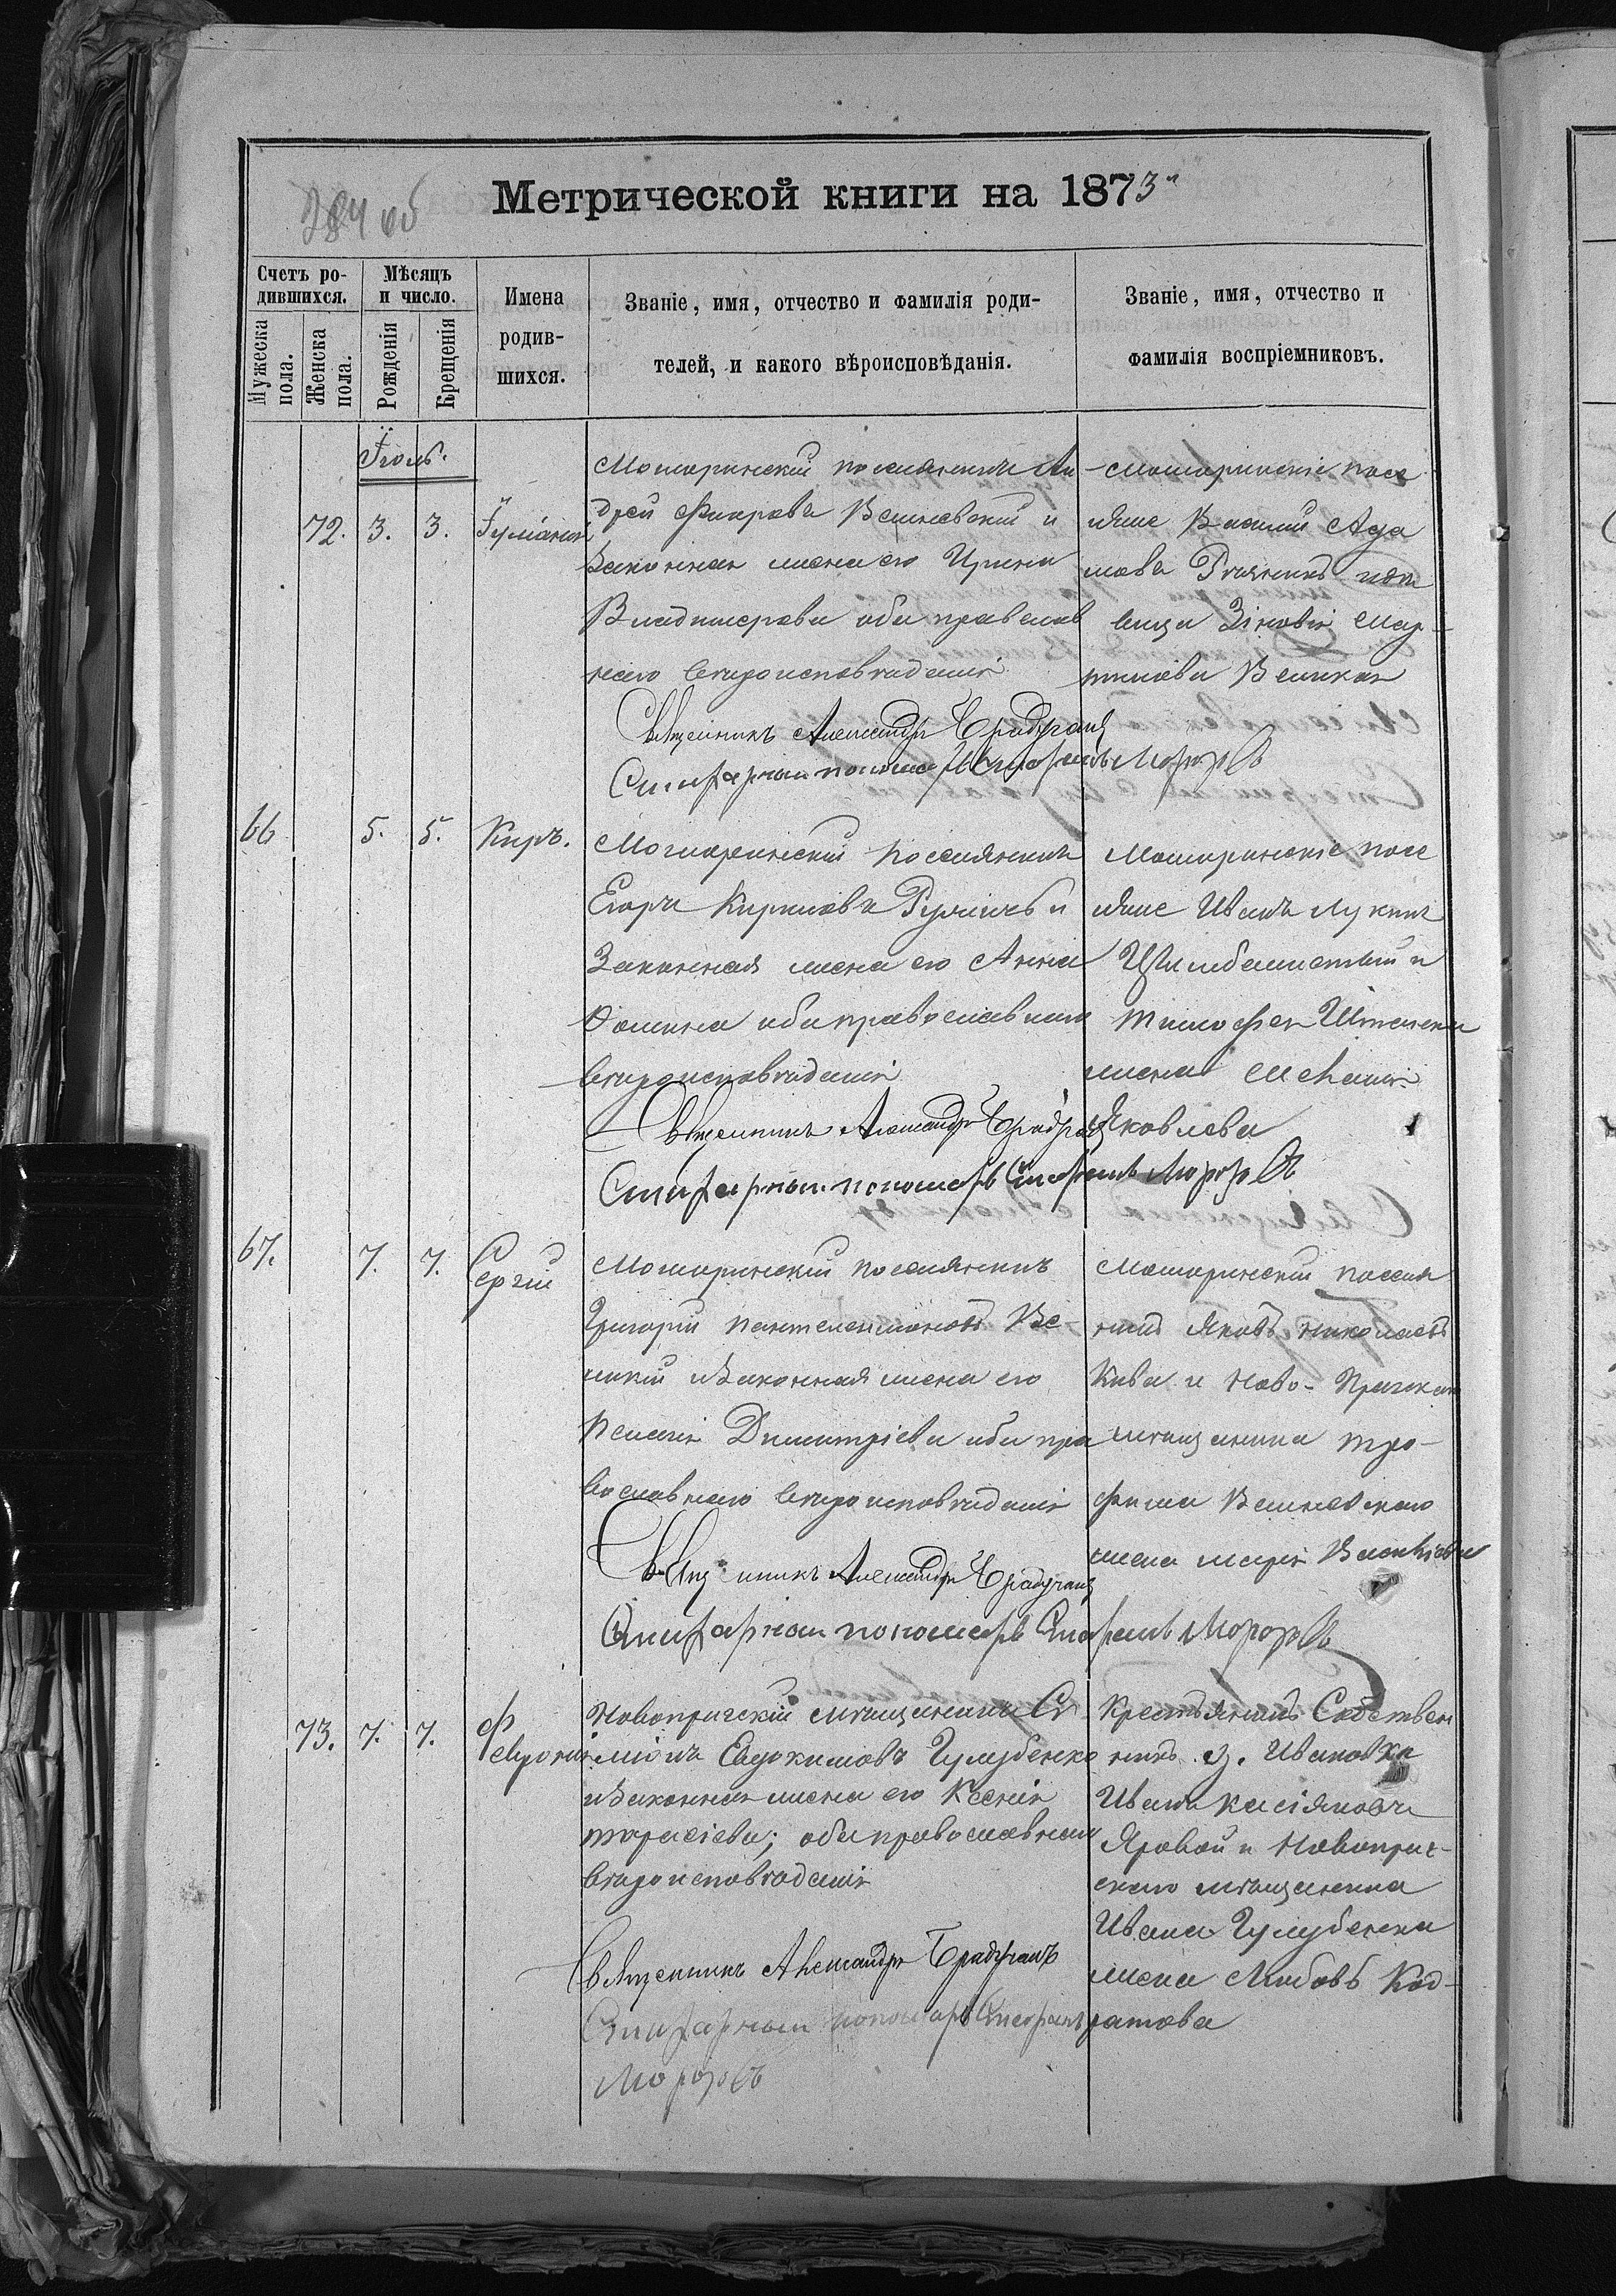 384 об
Метрической книги на 1873 г
Счетъ ро-
дившихся.
Мужеска
пола.
Женска
пола.
Мѣсяцъ
и число.
Рожденія
Крещенія
Имена
родив-
шихся.
Званіе, имя, отчество и фамилія роди-
телей, и какого вѣроисповѣданія.
Званіе, имя, отчество и
фамилія воспріемниковъ.
Іюль.
72. 3. 3.
Мошоринскій поселянинъ Ан
дрей Вешневскій и
законная жена его Ирина
Владимерова оба православ
наго вѣроисповѣданія
Священникъ Александръ Брадучанъ
пономарь Морозовъ
Мошоринскіе посе
ляне Василій Ада
мовъ
вица Зіновія Мар-
тинова Великая
66 5. 5. Киръ.
Мошоринскій поселянинъ
Егоръ Кириловъ и
Законная жена его Анна
Фомина оба православнаго
вѣроисповѣданія
Священникъ Александръ Брадучанъ
пономарь Морозовъ
Мошоринскіе посе
ляне Иванъ Лукинъ
и
Тимофея
жена Меланія
Яковлева
67. 7. 7. Сергій
Мошоринскій поселянинъ
Григорій Пантелеимоновъ Ве-
ликій и Законная жена его
Пелагія Димитріева оба пра
вославнаго вѣроисповѣданія
Священникъ Александръ Брадучанъ
пономарь Морозовъ
Мошоринскій поселя
нинъ Яковъ Николаевъ
Кива и Ново-Пражскаго
мѣщанина Тро-
фима Вешневскаго
жена Марія Васильева
73. 7. 7. Феврония
Новопражскій мѣщанинъ Си
міонъ Евдокимовъ Гулубенко
и Законная жена его Ксенія
Тарасіева; оба православнаго
вѣроисповѣданія
Священникъ Александръ Брадучанъ
пономарь
Морозовъ
Крестьянинъ Собствен
никъ д. Ивановки
Иванъ Касіяновъ
Яровой и Новопраж-
скаго мѣщанина
Ивана Гулубенка
жена Любовь Код-
ратова